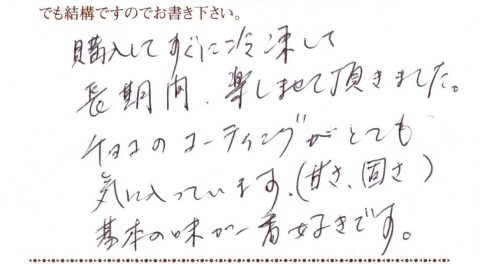 でも結構ですのでお書き下さい。
購入してすぐに冷凍して
長期間、楽しませて頂きました。
チョコのコーティングがとても
気に入っています、(甘さ、固さ)
基本の味が一番好きです。